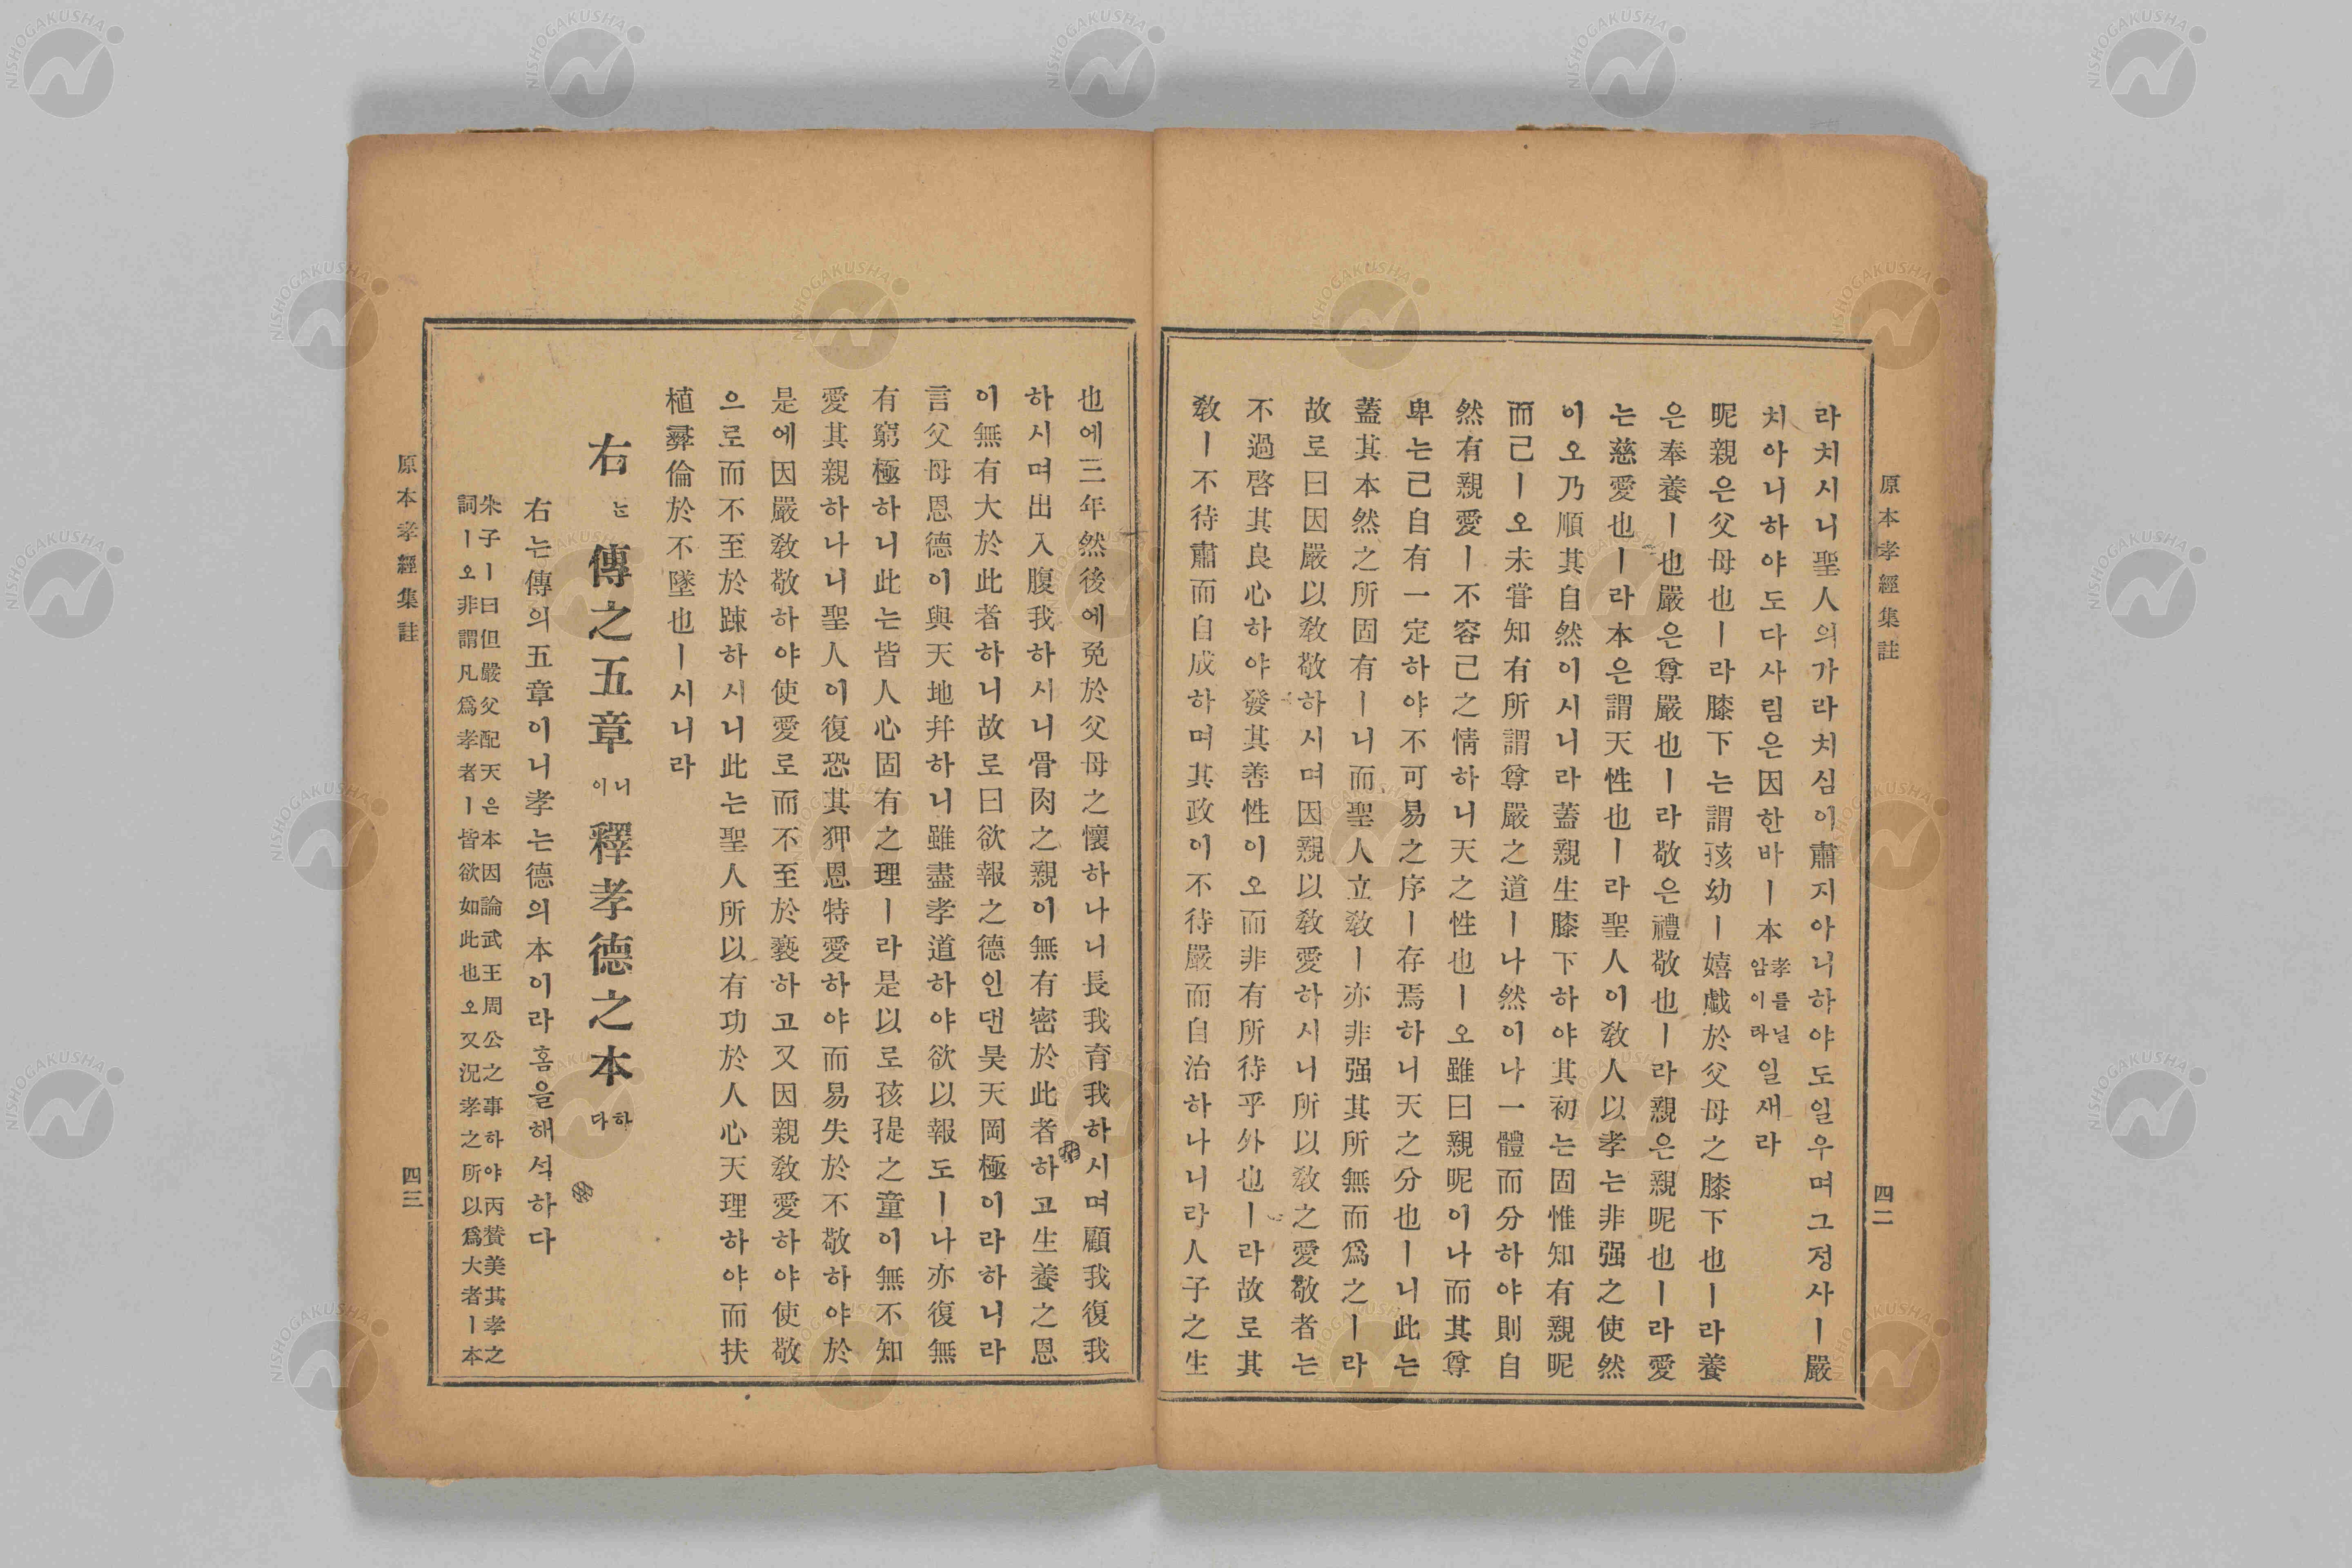 原本孝經集註 四二
라치시니聖人의가라치심이肅지아니하야도일우며그정사ㅣ嚴
치아니하야도다사림은因한바ㅣ本孝를닐암이라일새라
昵親은父母也ㅣ라膝下는謂孩幼ㅣ嬉戱於父母之膝下也ㅣ라養
은奉養ㅣ也嚴은尊嚴也ㅣ라敬은禮敬也ㅣ라親은親昵也ㅣ라愛
는慈愛也ㅣ라本은謂天性也ㅣ라聖人이敎人以孝는非强之使然
이오乃順其自然이시니라蓋親生膝下하야其初는固惟知有親昵
而已ㅣ오未甞知有所謂尊嚴之道ㅣ나然이나一體而分하야則自
然有親愛ㅣ不容已之情하니天之性也ㅣ오雖曰親昵이나而其尊
卑는已自有一定하야不可易之序ㅣ存焉하니天之分也ㅣ니此는
蓋其本然之所固有ㅣ니而聖人立敎ㅣ亦非强其所無而爲之ㅣ라
故로曰因嚴以敎敬하시며因親以敎愛하시니所以敎之愛敬者는
不過啓其良心하야發其善性이오而非有所待乎外也ㅣ라故로其
敎ㅣ不待肅而自成하며其政이不待嚴而自治하나니라人子之生
也에三年然後에免於父母之懷하나니長我育我하시며顧我復我
하시며出入腹我하시니骨肉之親이無有密於此者하고生養之恩
이無有大於此者하니故로曰欲報之德인댄昊天罔極이라하니라
言父母恩德이與天地幷하니雖盡孝道하야欲以報도ㅣ나亦復無
有窮極하니此는皆人心固有之理ㅣ라是以로孩提之童이無不知
愛其親하나니聖人이復恐其狎恩特愛하야而易失於不敬하야於
是에因嚴敎敬하야使愛로而不至於褻하고又因親敎愛하야使敬
으로而不至於踈하시니此는聖人所以有功於人心天理하야而扶
植彛倫於不墜也ㅣ시니라
右는傳之五章이니釋孝德之本하다
右는傳의五章이니孝는德의本이라홈을해석하다
朱子ㅣ曰但嚴父配天은本因論武王周公之事하야而贊美其孝之
詞ㅣ오非謂凡爲孝者ㅣ皆欲如此也오又況孝之所以爲大者ㅣ本
原本孝經集註 四三